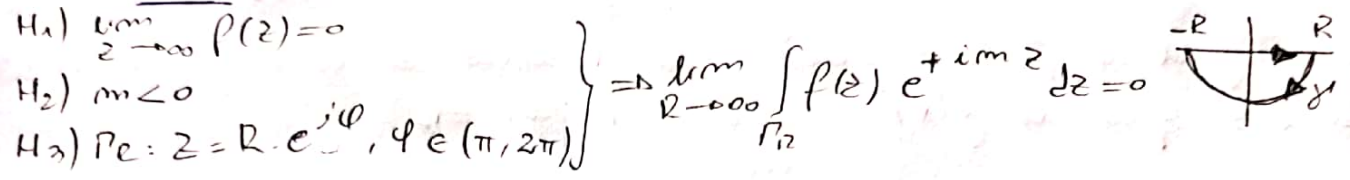 H₁) lim z→∞ f(z)=0
H₂) m<0
H₃) Γ_R : z = R·e^{iφ}, φ ∈ (π, 2π)
⇒ lim R→∞ ∫_{Γ_R} f(z) e^{+imz} dz = 0
-R R
γ